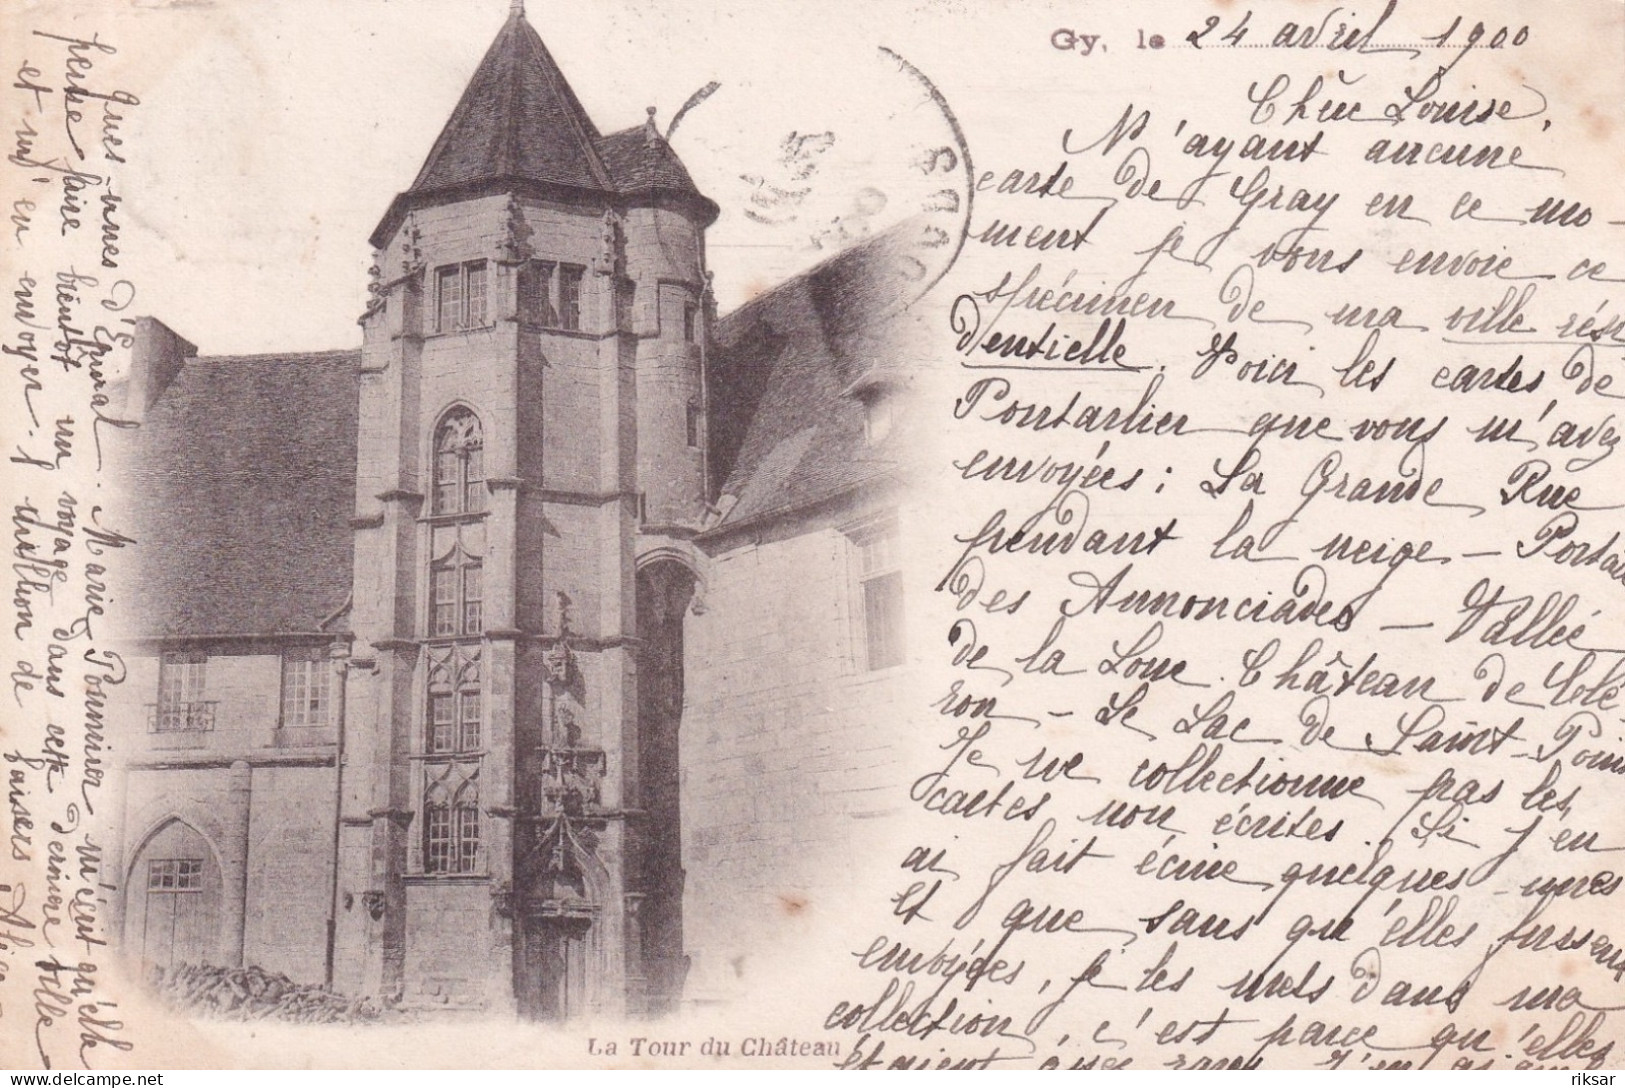 Gy, le 24 avril 1900
Chère Louise,
N'ayant aucune
carte de Gray en ce mo-
ment je vous envoie ce
spécimen de ma ville rési
dentielle. Voici les cartes de
Pontarlier que vous m'avez
envoyées : La Grande Rue
pendant la neige - Portail
des Annonciades - Vallée
de la Loue. Château de Clé
ron - Le Lac de Saint-Point
Je ne collectionne pas les
cartes non écrites. Si j'en
ai fait écrire quelques-unes
et que sans qu'elles fussent
envoyées, je les mets dans ma
collection, c'est parce qu'elles
étaient assez rares. J'en ai
ques-unes d'Epinal. Marie Pommier m'écrit qu'elle
pense faire bientôt un voyage dans cette dernière ville
et m'en envoyer. 1 million de baisers Alice
La Tour du Château
DOUBS
riksar